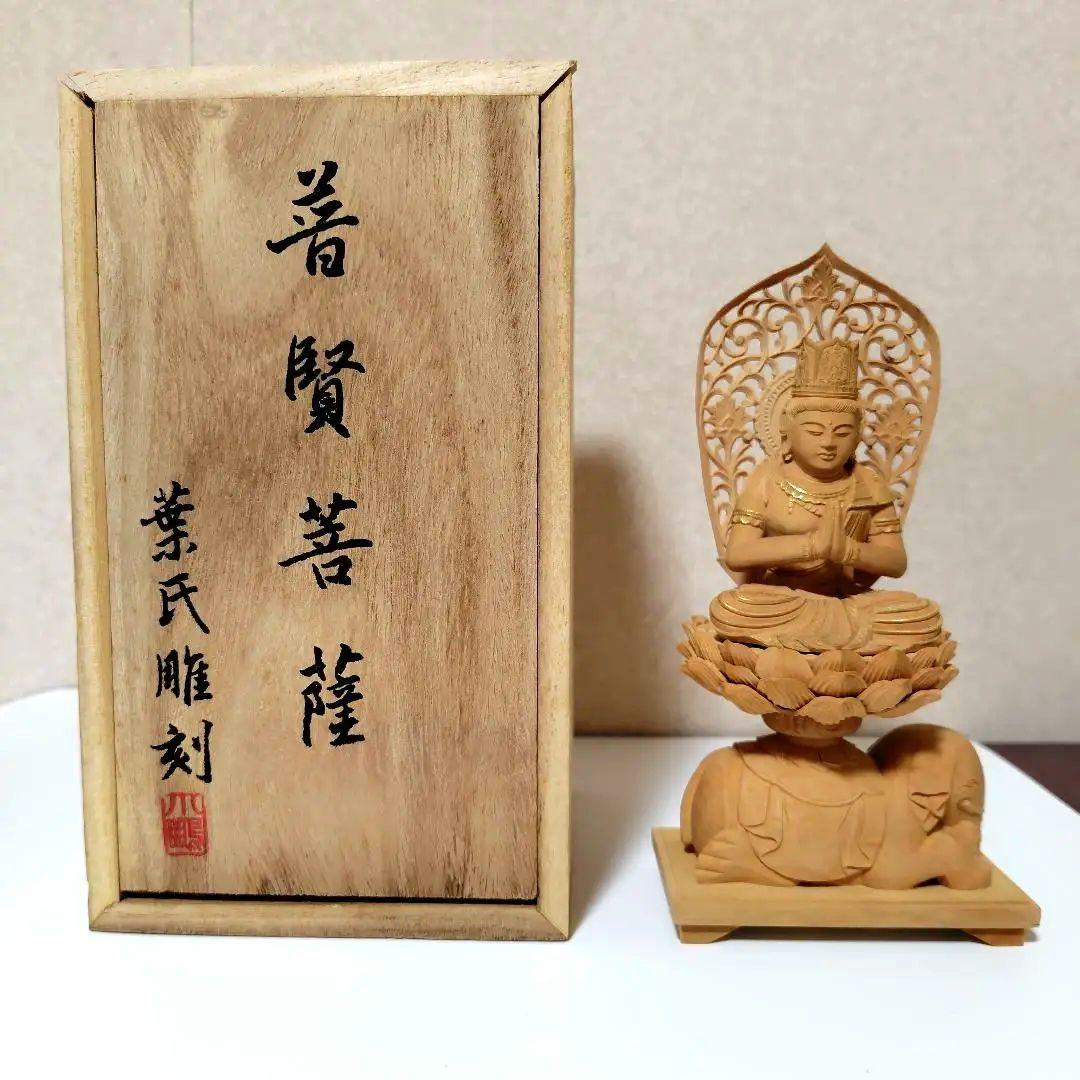 普賢菩薩
葉氏雕刻